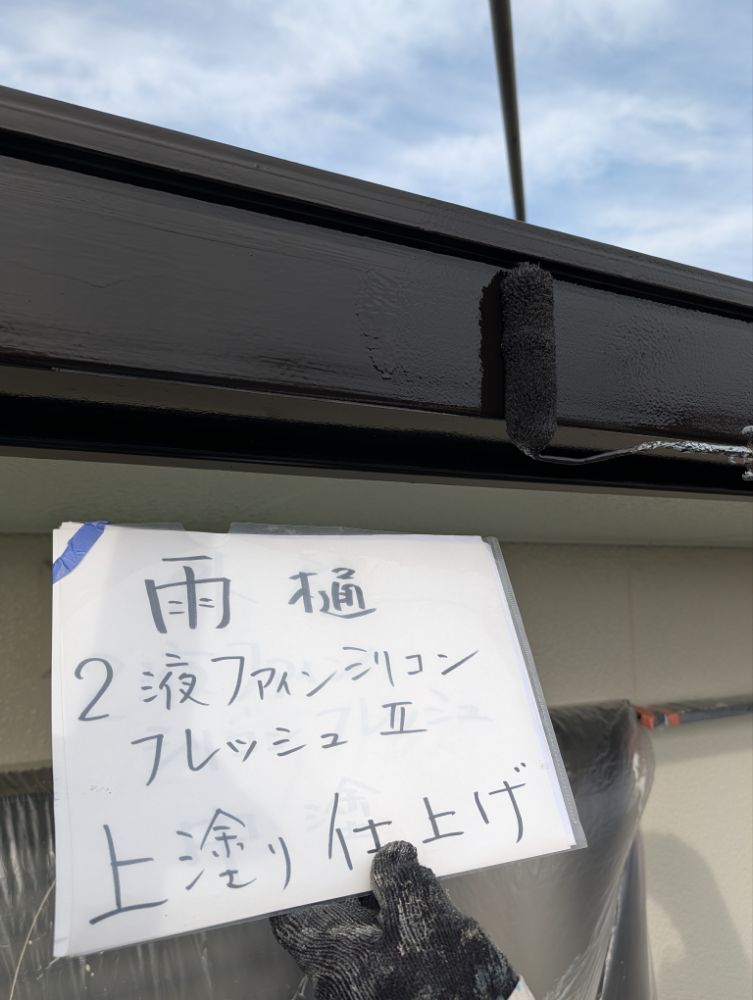 雨樋
2液ファインシリコン
フレッシュⅡ
上塗り仕上げ